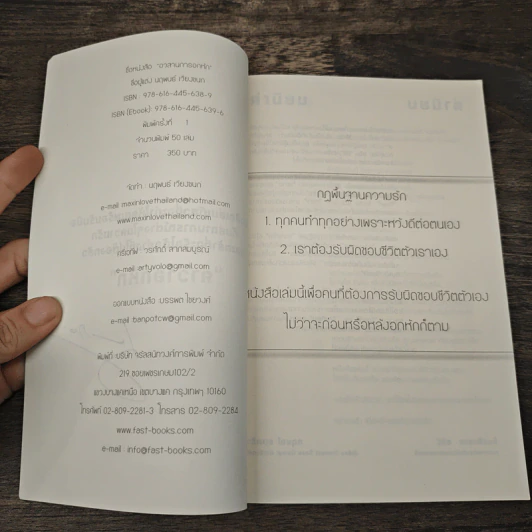 ชื่อหนังสือ "อาสานการอกหัก"
ชื่อผู้แต่ง นฤพนธ์ เวียงชนก
ISBN : 978-616-445-638-9
ISBN (Ebook): 978-616-445-639-6
พิมพ์ครั้งที่ 1
จำนวนพิมพ์ 50 เล่ม
ราคา 350 บาท
จัดทำ : นฤพนธ์ เวียงชนก
e-mail: maxinlovethailand@hotmail.com
www.maxinlovethailand.com
วรศักดิ์ ลาภสมบูรณ์
e-mail: artyvolo@gmail.com
ออกแบบหนังสือ บรรพต ไชยวงค์
e-mail: banpotcw@gmail.com
พิมพ์ที่ บริษัท จรัสสนิทวงศ์การพิมพ์ จำกัด
219 ซอยเพชรเกษม102/2
แขวงบางแคเหนือ เขตบางแค กรุงเทพฯ 10160
โทรศัพท์ 02-809-2281-3 โทรสาร 02-809-2284
www.fast-books.com
e-mail : info@fast-books.com
กฎพื้นฐานความรัก
1. ทุกคนทำทุกอย่างเพราะหวังดีต่อตนเอง
2. เราต้องรับผิดชอบชีวิตตัวเราเอง
หนังสือเล่มนี้เพื่อคนที่ต้องการรับผิดชอบชีวิตตัวเอง
ไม่ว่าจะก่อนหรือหลังอกหักก็ตาม